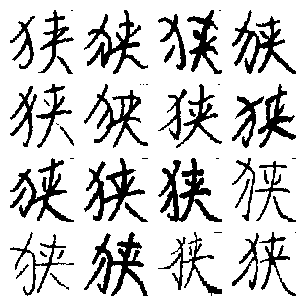 狭狭狭狭
狭狭狭狭
狭狭狭狭
狭狭狭狭